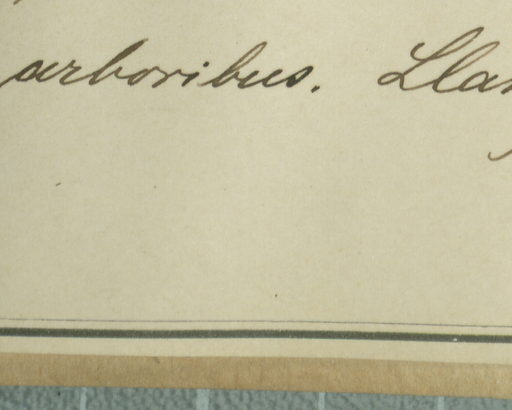 arboribus. Llan